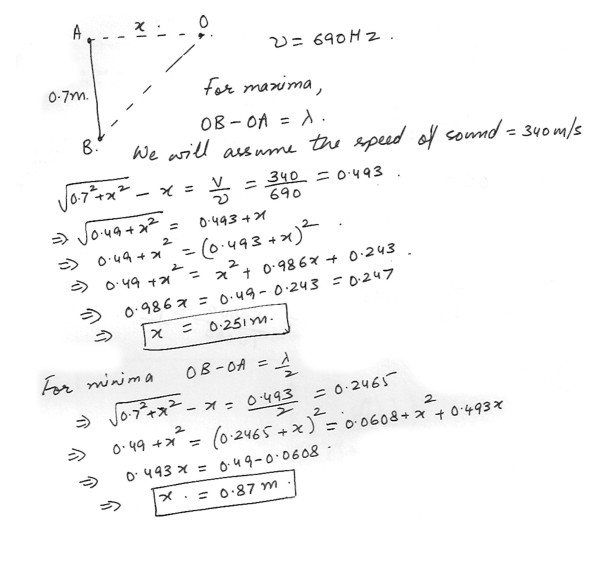 A x O
0.7m.
B.
ν = 690Hz.
For maxima,
OB - OA = λ.
We will assume the speed of sound = 340m/s
√(0.7² + x²) - x = V/ν = 340/690 = 0.493.
⇒ √(0.49 + x²) = 0.493 + x
⇒ 0.49 + x² = (0.493 + x)².
⇒ 0.49 + x² = x² + 0.986x + 0.243.
⇒ 0.986x = 0.49 - 0.243 = 0.247
⇒ x = 0.251m.
For minima OB - OA = λ/2
⇒ √(0.7² + x²) - x = 0.493/2 = 0.2465
⇒ 0.49 + x² = (0.2465 + x)² = 0.0608 + x² + 0.493x
⇒ 0.493x = 0.49 - 0.0608.
⇒ x. = 0.87m.